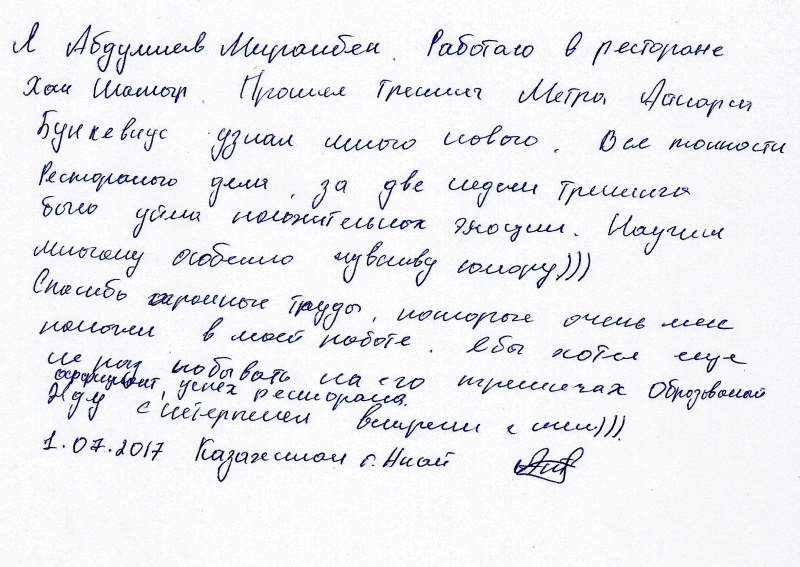 Я Абдулиев Мирамбек. Работаю в ресторане
Хан Шатыр. Прошел тренинг Метра
Бункевиус узнал много нового. Все тонкости
Ресторанного дела, за две недели тренинга
было уйма положительных эмоции. Научил
многому особенно чувству юмору)))
Спасибо огромные труды, которые очень мне
помогли в моей работе. Я бы хотел еще
не раз побывать на его тренингах Образованый
официант, успех ресторана.
Жду с нетерпением встречи с ним))).
1.07.2017 Казахстан г.